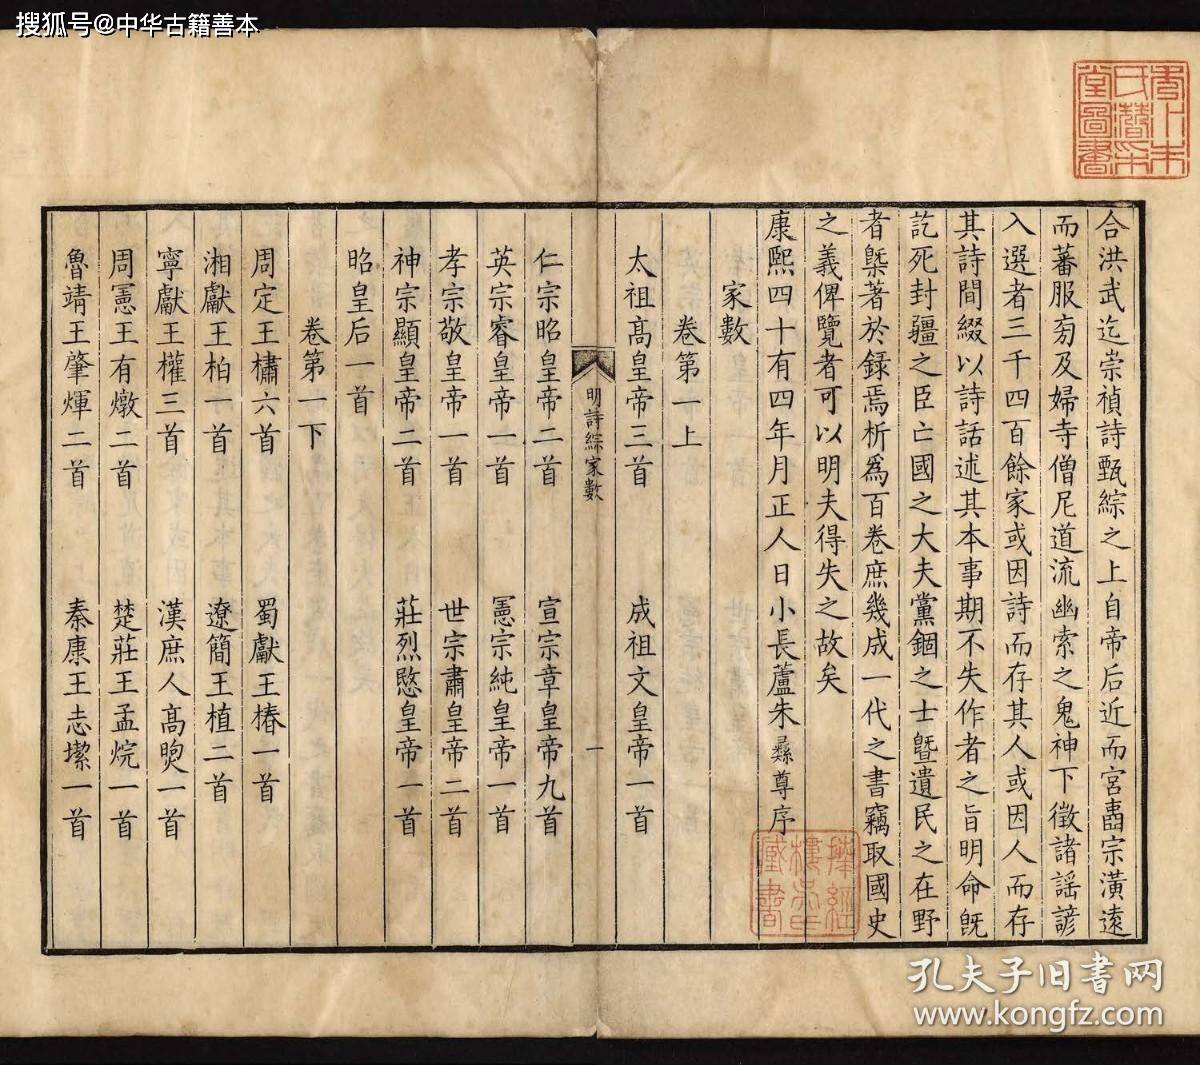 搜狐号@中华古籍善本
合洪武迄崇禎詩甄綜之上自帝后近而宮壼宗潢遠
而蕃服旁及婦寺僧尼道流幽索之鬼神下徵諸謡諺
入選者三千四百餘家或因詩而存其人或因人而存
其詩間綴以詩話述其本事期不失作者之旨明命既
訖死封疆之臣亡國之大夫黨錮之士曁遺民之在野
者槩著於録焉析爲百卷庶幾成一代之書竊取國史
之義俾覽者可以明夫得失之故矣
康熙四十有四年月正人日小長蘆朱彞尊序
家數
卷第一上
太祖高皇帝三首 成祖文皇帝一首
明詩綜家數 一
仁宗昭皇帝二首 宣宗章皇帝九首
英宗睿皇帝一首 憲宗純皇帝一首
孝宗敬皇帝一首 世宗肅皇帝二首
神宗顯皇帝二首 莊烈愍皇帝一首
昭皇后一首
卷第一下
周定王橚六首 蜀獻王椿一首
湘獻王柏一首 遼簡王植二首
寧獻王權三首 漢庶人高煚一首
周憲王有燉二首 楚莊王孟烷一首
魯靖王肇煇二首 秦康王志㓗一首
孔夫子旧书网
www.kongfz.com